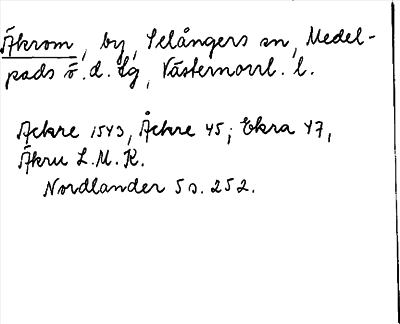 Äkrom, by, Selångers sn, Medel-
pads ö. d. tg, Västernorrl. l.
Ackre 1543, Åckre 45; Ekra 47,
Äkru L.M.K.
Nordlander 5 s. 252.